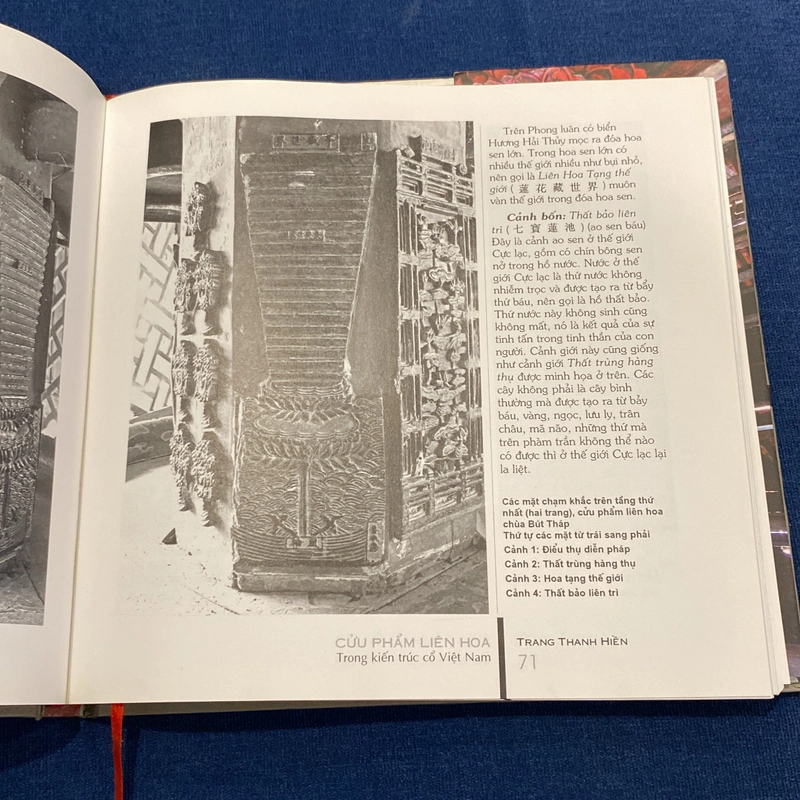 Trên Phong luân có biển
Hương Hải Thủy mọc ra đóa hoa
sen lớn. Trong hoa sen lớn có
nhiều thế giới nhiều như bụi nhỏ,
nên gọi là Liên Hoa Tạng thế
giới ( 蓮 花 藏 世 界 ) muôn
vàn thế giới trong đóa hoa sen.
Cảnh bốn: Thất bảo liên
trì ( 七 寶 蓮 池 ) (ao sen báu)
Đây là cảnh ao sen ở thế giới
Cực lạc, gồm có chín bông sen
nở trong hồ nước. Nước ở thế
giới Cực lạc là thứ nước không
nhiễm trọc và được tạo ra từ bẩy
thứ báu, nên gọi là hồ thất bảo.
Thứ nước này không sinh cũng
không mất, nó là kết quả của sự
tinh tấn trong tinh thần của con
người. Cảnh giới này cũng giống
như cảnh giới Thất trùng hàng
thụ được minh họa ở trên. Các
cây không phải là cây bình
thường mà được tạo ra từ bảy
báu, vàng, ngọc, lưu ly, trân
châu, mã não, những thứ mà
trên phàm trần không thể nào
có được thì ở thế giới Cực lạc lại
la liệt.
Các mặt chạm khắc trên tầng thứ
nhất (hai trang), cửu phẩm liên hoa
chùa Bút Tháp
Thứ tự các mặt từ trái sang phải
Cảnh 1: Điểu thụ diễn pháp
Cảnh 2: Thất trùng hàng thụ
Cảnh 3: Hoa tạng thế giới
Cảnh 4: Thất bảo liên trì
CỬU PHẨM LIÊN HOA
Trong kiến trúc cổ Việt Nam
TRANG THANH HIỀN
71